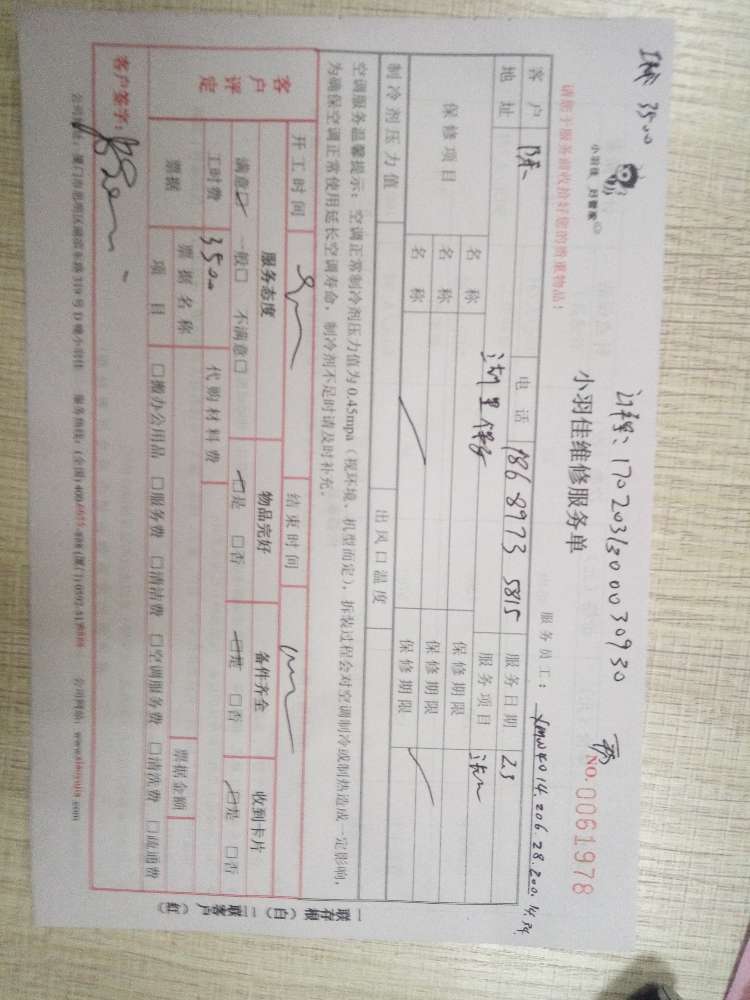 3500
小羽佳 好管家
请您于服务前收拾好您的贵重物品！
17020313000030930
小羽佳维修服务单
NO. 0061978
服务员工：
客户 陈 电话 186 8973 5815 服务日期 23
地址 服务项目
保修项目
名称 保修期限
名称 保修期限
名称 保修期限
制冷剂压力值 出风口温度
空调服务温馨提示：空调正常制冷剂压力值为0.45mpa（视环境、机型而定），拆装过程会对空调制冷或制热造成一定影响，
为确保空调正常使用延长空调寿命，制冷剂不足时请及时补充。
开工时间 结束时间
客户评定
服务态度 物品完好 备件齐全 收到卡片
满意☑ 一般□ 不满意□ □是 □否 □是 □否 □是 □否
工时费 3500 代购材料费
票据 票据名称 票据金额
项目 □搬办公用品 □服务费 □清洁费 □空调服务费 □清洗费 □疏通费
客户签字：
一联存根（白） 二联客户（红）